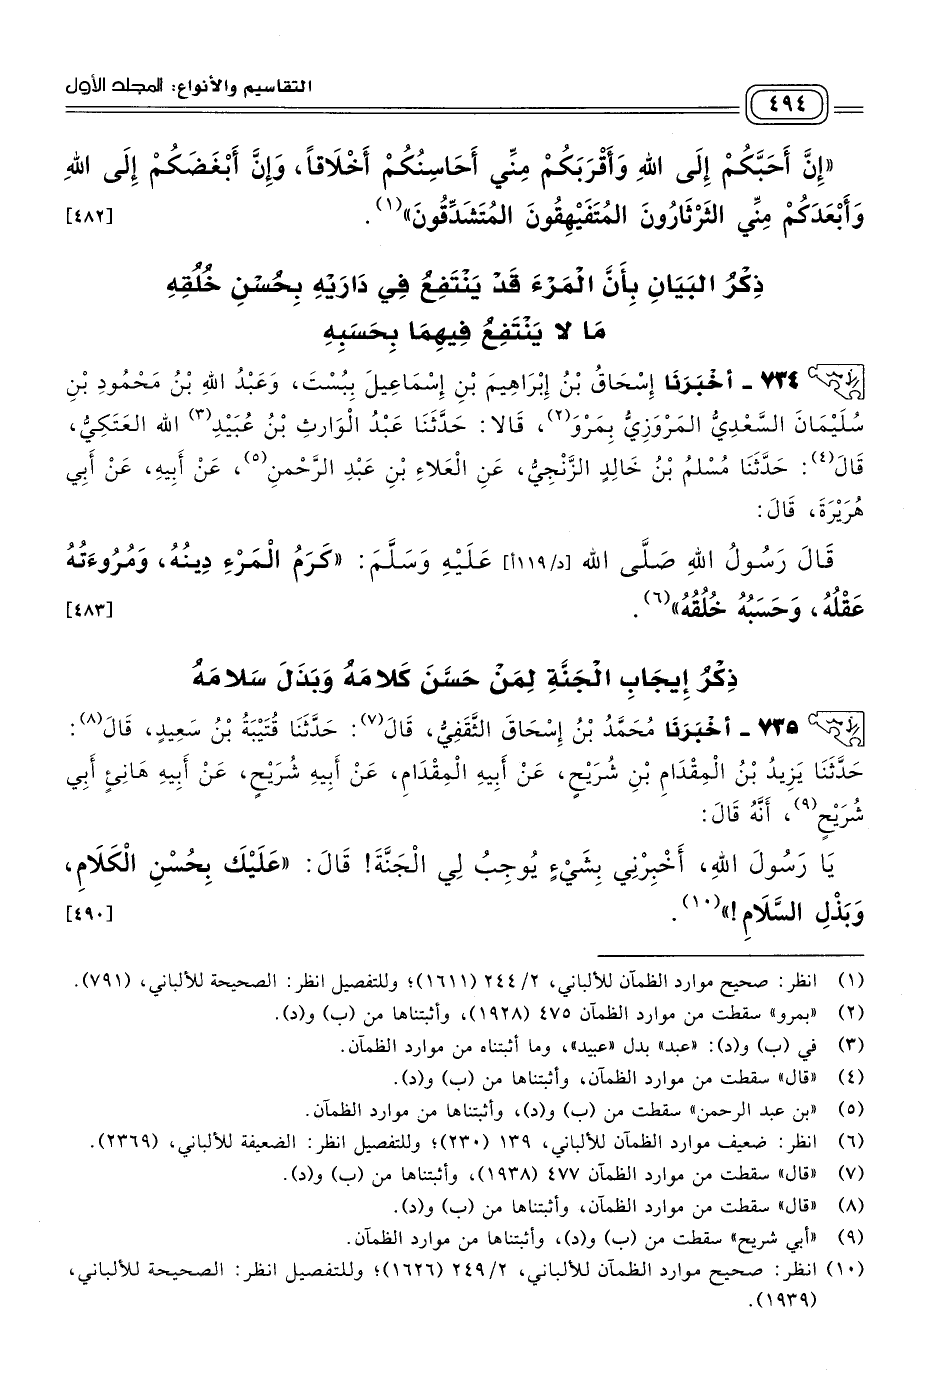 التقاسيم والأنواع: المجلد الأول
٤٩٤
«إِنَّ أَحَبَّكُمْ إِلَى اللهِ وَأَقْرَبَكُمْ مِنِّي أَحَاسِنُكُمْ أَخْلَاقاً، وَإِنَّ أَبْغَضَكُمْ إِلَى اللهِ
وَأَبْعَدَكُمْ مِنِّي الثَّرْثَارُونَ المُتَفَيْهِقُونَ المُتَشَدِّقُونَ»(١). [٤٨٢]
ذِكْرُ البَيَانِ بِأَنَّ الْمَرْءَ قَدْ يَنْتَفِعُ فِي دَارَيْهِ بِحُسْنِ خُلُقِهِ
مَا لا يَنْتَفِعُ فِيهِمَا بِحَسَبِهِ
٧٣٤ - أَخْبَرَنَا إِسْحَاقُ بْنُ إِبْرَاهِيمَ بْنِ إِسْمَاعِيلَ بِبُسْتَ، وَعَبْدُ اللهِ بْنُ مَحْمُودِ بْنِ
سُلَيْمَانَ السَّعْدِيُّ المَرْوَزِيُّ بِمَرْوَ(٢)، قَالا: حَدَّثَنَا عَبْدُ الْوَارِثِ بْنُ عُبَيْدِ(٣) الله العَتَكِيُّ،
قَالَ(٤): حَدَّثَنَا مُسْلمُ بْنُ خَالِدٍ الزَّنْجِيُّ، عَنِ الْعَلاءِ بْنِ عَبْدِ الرَّحْمنِ(٥)، عَنْ أَبِيهِ، عَنْ أَبِي
هُرَيْرَةَ، قَالَ:
قَالَ رَسُولُ اللهِ صَلَّى الله [د/١١٩أ] عَلَيْهِ وَسَلَّمَ: «كَرَمُ الْمَرْءِ دِينُهُ، وَمُرُوءَتُهُ
عَقْلُهُ، وَحَسَبُهُ خُلُقُهُ»(٦). [٤٨٣]
ذِكْرُ إِيجَابِ الْجَنَّةِ لِمَنْ حَسَّنَ كَلامَهُ وَبَذَلَ سَلامَهُ
٧٣٥ - أَخْبَرَنَا مُحَمَّدُ بْنُ إِسْحَاقَ الثَّقَفِيُّ، قَالَ(٧): حَدَّثَنَا قُتَيْبَةُ بْنُ سَعِيدٍ، قَالَ(٨):
حَدَّثَنَا يَزِيدُ بْنُ الْمِقْدَامِ بْنِ شُرَيْحٍ، عَنْ أَبِيهِ الْمِقْدَامِ، عَنْ أَبِيهِ شُرَيْحٍ، عَنْ أَبِيهِ هَانِئٍ أَبِي
شُرَيْحٍ(٩)، أَنَّهُ قَالَ:
يَا رَسُولَ اللهِ، أَخْبِرْنِي بِشَيْءٍ يُوجِبُ لِي الْجَنَّةَ! قَالَ: «عَلَيْكَ بِحُسْنِ الْكَلَامِ،
وَبَذْلِ السَّلَامِ!»(١٠). [٤٩٠]
(١) انظر: صحيح موارد الظمآن للألباني، ٢/ ٢٤٤ (١٦١١)؛ وللتفصيل انظر: الصحيحة للألباني، (٧٩١).
(٢) «بمرو» سقطت من موارد الظمآن ٤٧٥ (١٩٢٨)، وأثبتناها من (ب) و(د).
(٣) في (ب) و(د): «عبد» بدل «عبيد»، وما أثبتناه من موارد الظمآن.
(٤) «قال» سقطت من موارد الظمآن، وأثبتناها من (ب) و(د).
(٥) «بن عبد الرحمن» سقطت من (ب) و(د)، وأثبتناها من موارد الظمآن.
(٦) انظر: ضعيف موارد الظمآن للألباني، ١٣٩ (٢٣٠)؛ وللتفصيل انظر: الضعيفة للألباني، (٢٣٦٩).
(٧) «قال» سقطت من موارد الظمآن ٤٧٧ (١٩٣٨)، وأثبتناها من (ب) و(د).
(٨) «قال» سقطت من موارد الظمآن، وأثبتناها من (ب) و(د).
(٩) «أبي شريح» سقطت من (ب) و(د)، وأثبتناها من موارد الظمآن.
(١٠) انظر: صحيح موارد الظمآن للألباني، ٢/ ٢٤٩ (١٦٢٦)؛ وللتفصيل انظر: الصحيحة للألباني،
(١٩٣٩).